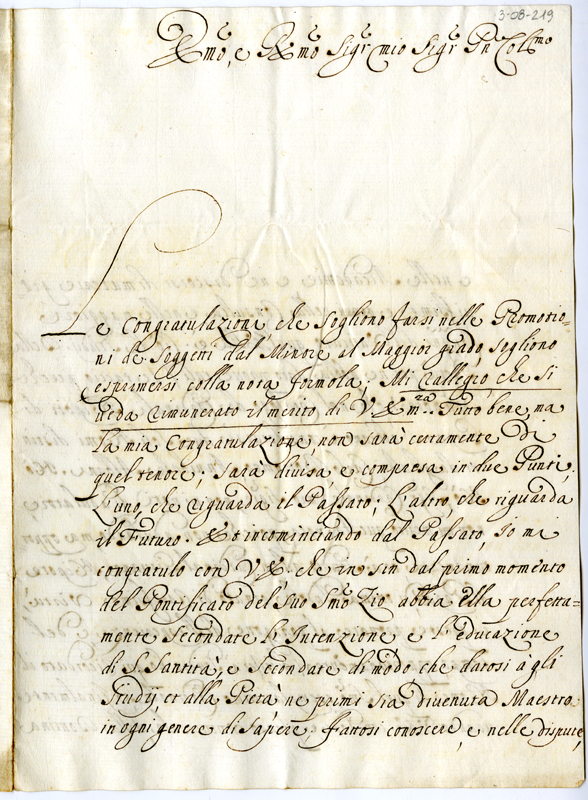 3-08-219
Emõ, e Rmõ Sigr mio Sigr Pn Colmo
Le Congratulazione, che sogliono farsi nelle Promotio=
ni de Soggetti dal Minore al Maggior grado, sogliono
esprimersi colla nota formola; Mi rallegro, che si
ueda rimunerato il merito di V. Em.ra Tutto bene, ma
la mia Congratulazione, non sarà certamente di
quel tenore; sarà diuisa, e compresa in due Punti,
L'uno, che riguarda il Passato; L'altro, che riguarda
il Futuro. Et incominciando dal Passato, Io mi
congratulo con V. E. che in sin dal primo momento
del Pontificato del suo Smõ Zio abbia ella perfetta=
mente secondate l'Intenzione e l'educazione
di S. Santità, e secondate di modo, che datosi à gli
Studij, et alla Pietà ne primi sia diuenuta Maestro
in ogni genere di sapere. Fattosi conoscere, e nelle dispute,